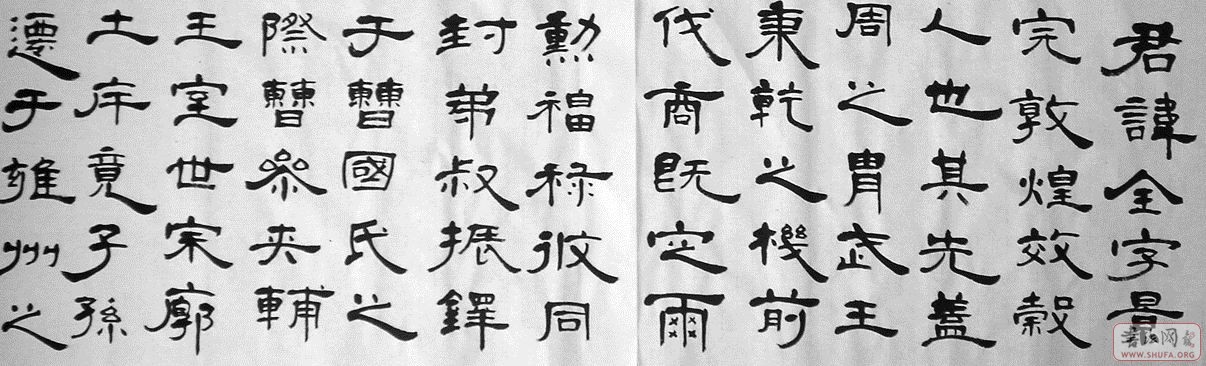 君諱全字景
完敦煌效穀
人也其先蓋
周之胄武王
秉乾之機前
伐商既定爾
勳福祿攸同
封弟叔振鐸
于曹國氏之
際曹參夾輔
王室世宗廓
土斥竟子孫
遷于雍州之
WWW.SHUFA.ORG